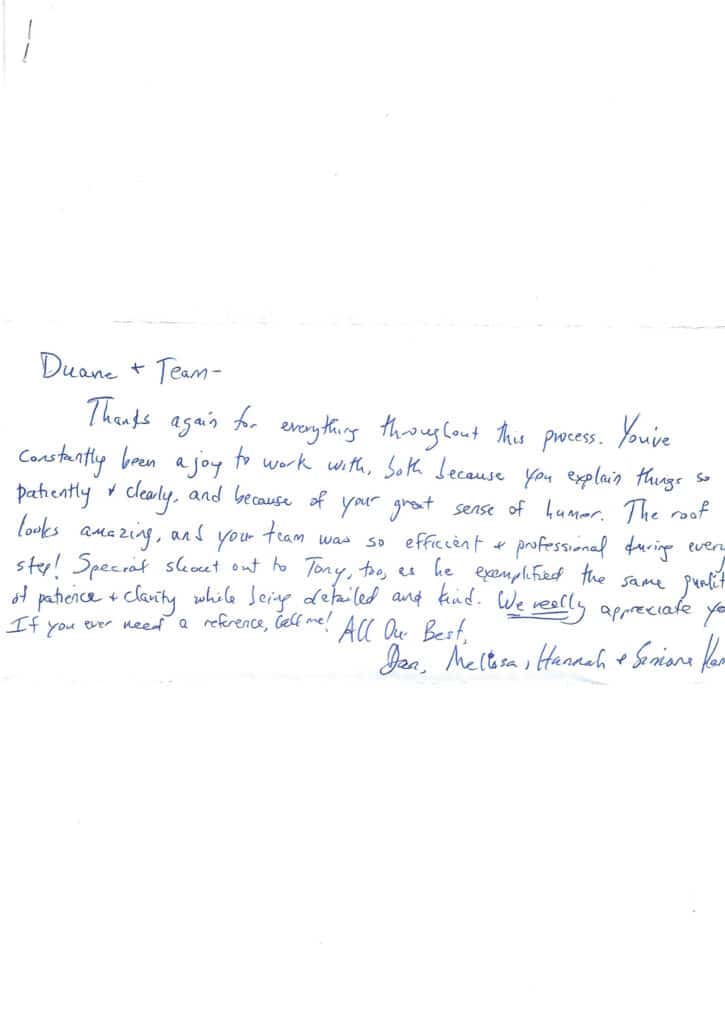 Duane + Team-
Thanks again for everything throughout this process. You've
constantly been a joy to work with, both because you explain things so
patiently + clearly, and because of your great sense of humor. The roof
looks amazing, and your team was so efficient + professional during every
step! Special shout out to Tony, too, as he exemplified the same qualit
of patience + clarity while being detailed and kind. We really appreciate yo
If you ever need a reference, Call me! All Our Best,
Dan, Melissa, Hannah +